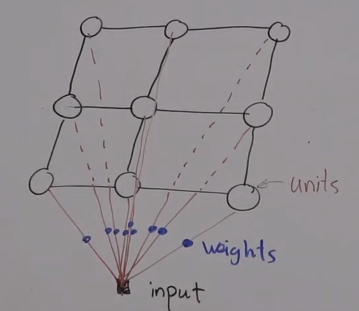 units
weights
input